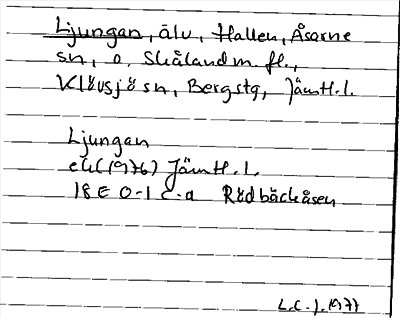 Ljungan, älv, Hallen, Åsarne
sn, o. Skålan d m. fl.,
Klövsjö sn, Bergs tg, Jämtl. l.
Ljungan
ek (1976) Jämtl. l.
18E 0-1 c-a Rödbäckåsen
L.C-J. 1977